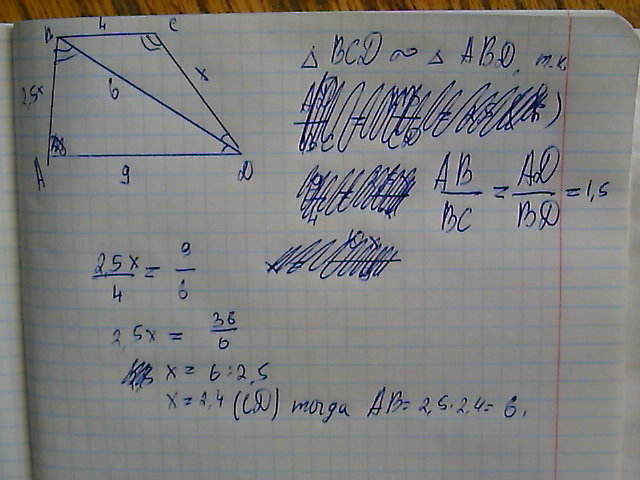 B 4 C
2,5x 6 x
A 9 D
△ BCD ∾ △ ABD, т.к.
AB/BC = AD/BD = 1,5
2,5x/4 = 9/6
2,5x = 36/6
x = 6 : 2,5
x = 2,4 (CD) тогда AB = 2,5 · 2,4 = 6.